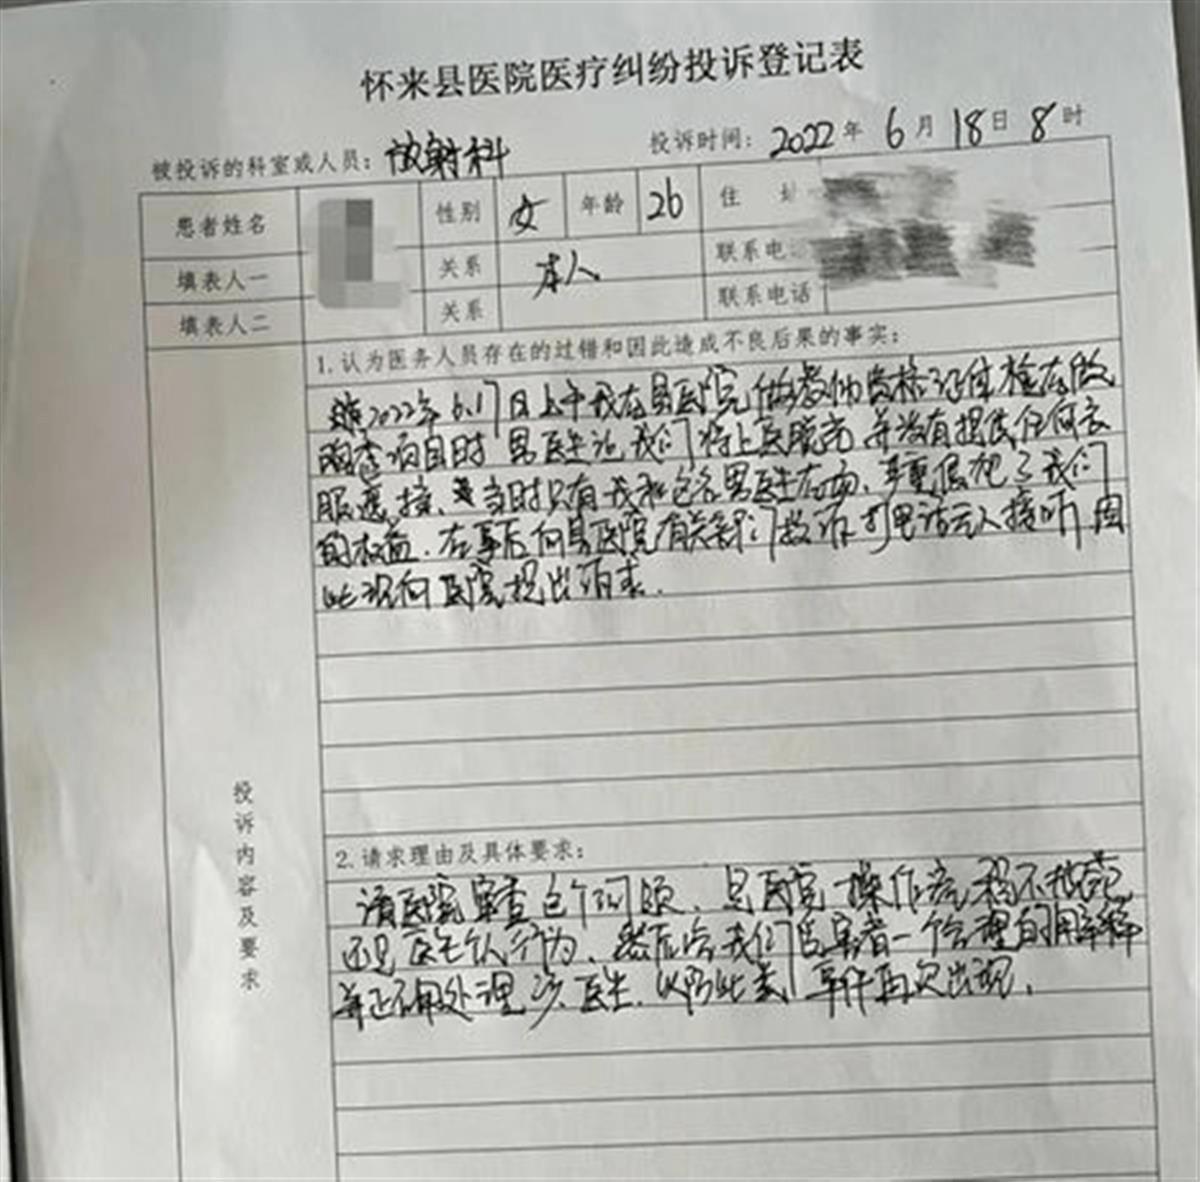 怀来县医院医疗纠纷投诉登记表
被投诉的科室或人员：放射科 投诉时间：2022年6月18日8时
患者姓名 性别 女 年龄 26 住 址
填表人一 关系 本人 联系电话
填表人二 关系 联系电话
投诉内容及要求
1.认为医务人员存在的过错和因此造成不良后果的事实：
2022年6.17日上午我在县医院做教师资格证体检在做
胸透项目时 男医生让我们将上衣脱光 并没有提供任何衣
服遮挡、当时只有我和这名男医生在内、严重侵犯了我们
的权益．在事后向县医院有关部门投诉打电话无人接听 因
此现向医院提出请求．
2.请求理由及具体要求：
请医院审查这个问题、是医院操作流程不规范
还是医生个人行为、然后给我们受害者一个合理的解释
并正确处理该医生．以防此类事件再次出现．